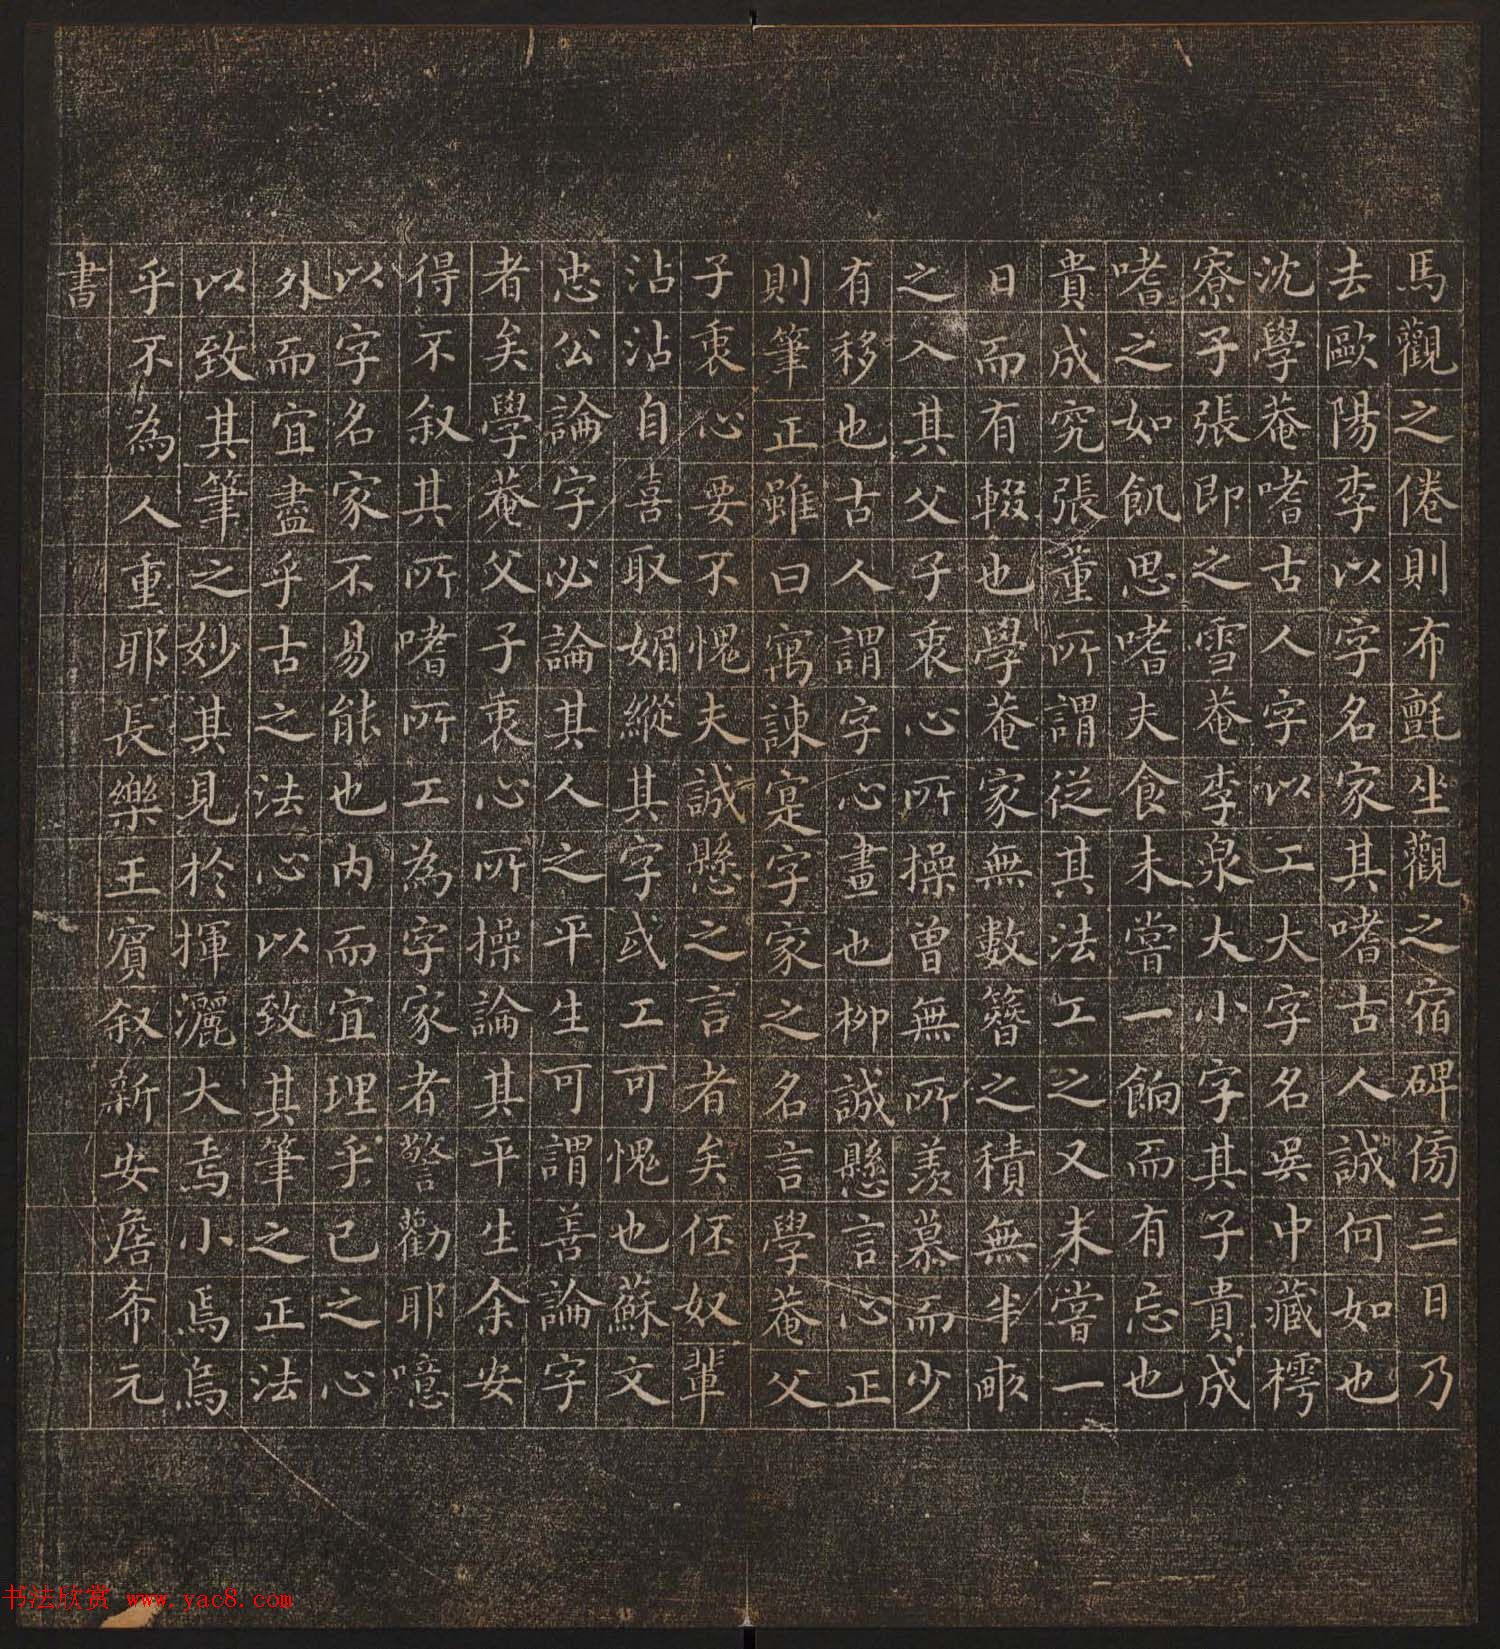 馬觀之倦則布氈坐觀之宿碑傍三日乃
去歐陽李以字名家其嗜古人誠何如也
沈學菴嗜古人字以工大字名吳中藏樗
寮子張即之雪菴李泉大小字其子貴成
嗜之如飢思嗜夫食未嘗一餉而有忘也
貴成究張董所謂從其法工之又未嘗一
日而有輟也學菴家無數簪之積無半畝
之入其父子衷心所操曾無所羨慕而少
有移也古人謂字心畫也柳誠懸言心正
則筆正雖曰寓諫寔字家之名言學菴父
子衷心要不愧夫誠懸之言者矣伾奴輩
沾沾自喜取媚縱其字或工可愧也蘇文
忠公論字必論其人之平生可謂善論字
者矣學菴父子衷心所操論其平生余安
得不叙其所嗜所工為字家者警勸耶噫
以字名家不易能也内而宜理乎己之心
外而宜盡乎古之法心以致其筆之正法
以致其筆之妙其見於揮灑大焉小焉烏
乎不為人重耶長樂王賓叙新安詹希元
書
书法欣赏 www.yac8.com